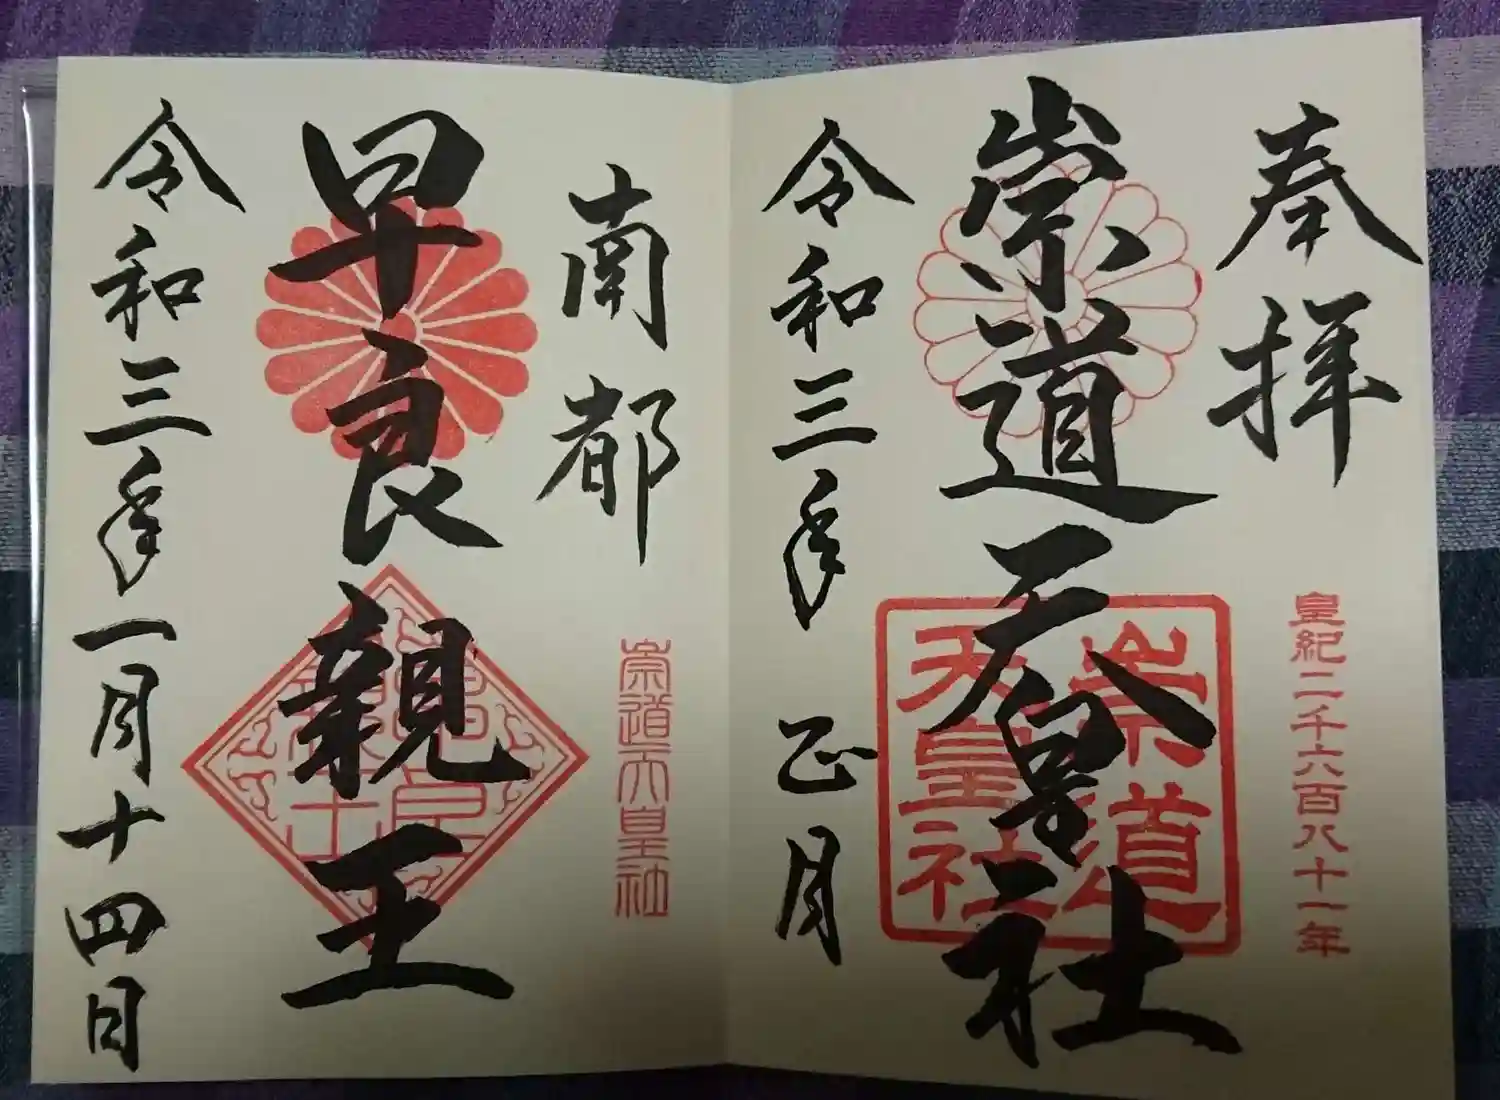 奉拝
皇紀二千六百八十一年
崇道天皇社
崇道天皇社
令和三年 正月
南都
崇道天皇社
早良親王
令和三年一月十四日